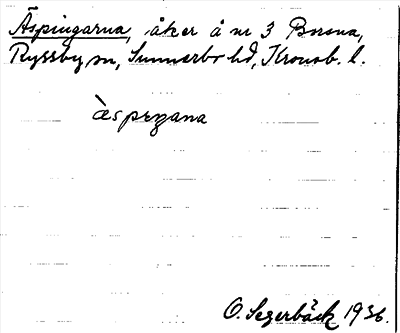 Äspingarna, åker å nr 3 Borsna,
Ryssby sn, Sunnerbo hd, Kronob. l.
äspeŋana
O. Segerbäck 1936.